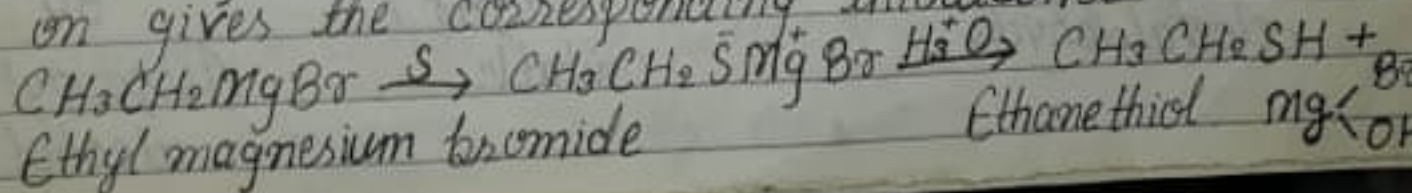 on gives the corresponding
CH3CH2MgBr S→ CH3CH2 S̄Mg⁺Br H3⁺O→ CH3CH2SH +
Ethyl magnesium bromide Ethanethiol Mg< Br OH